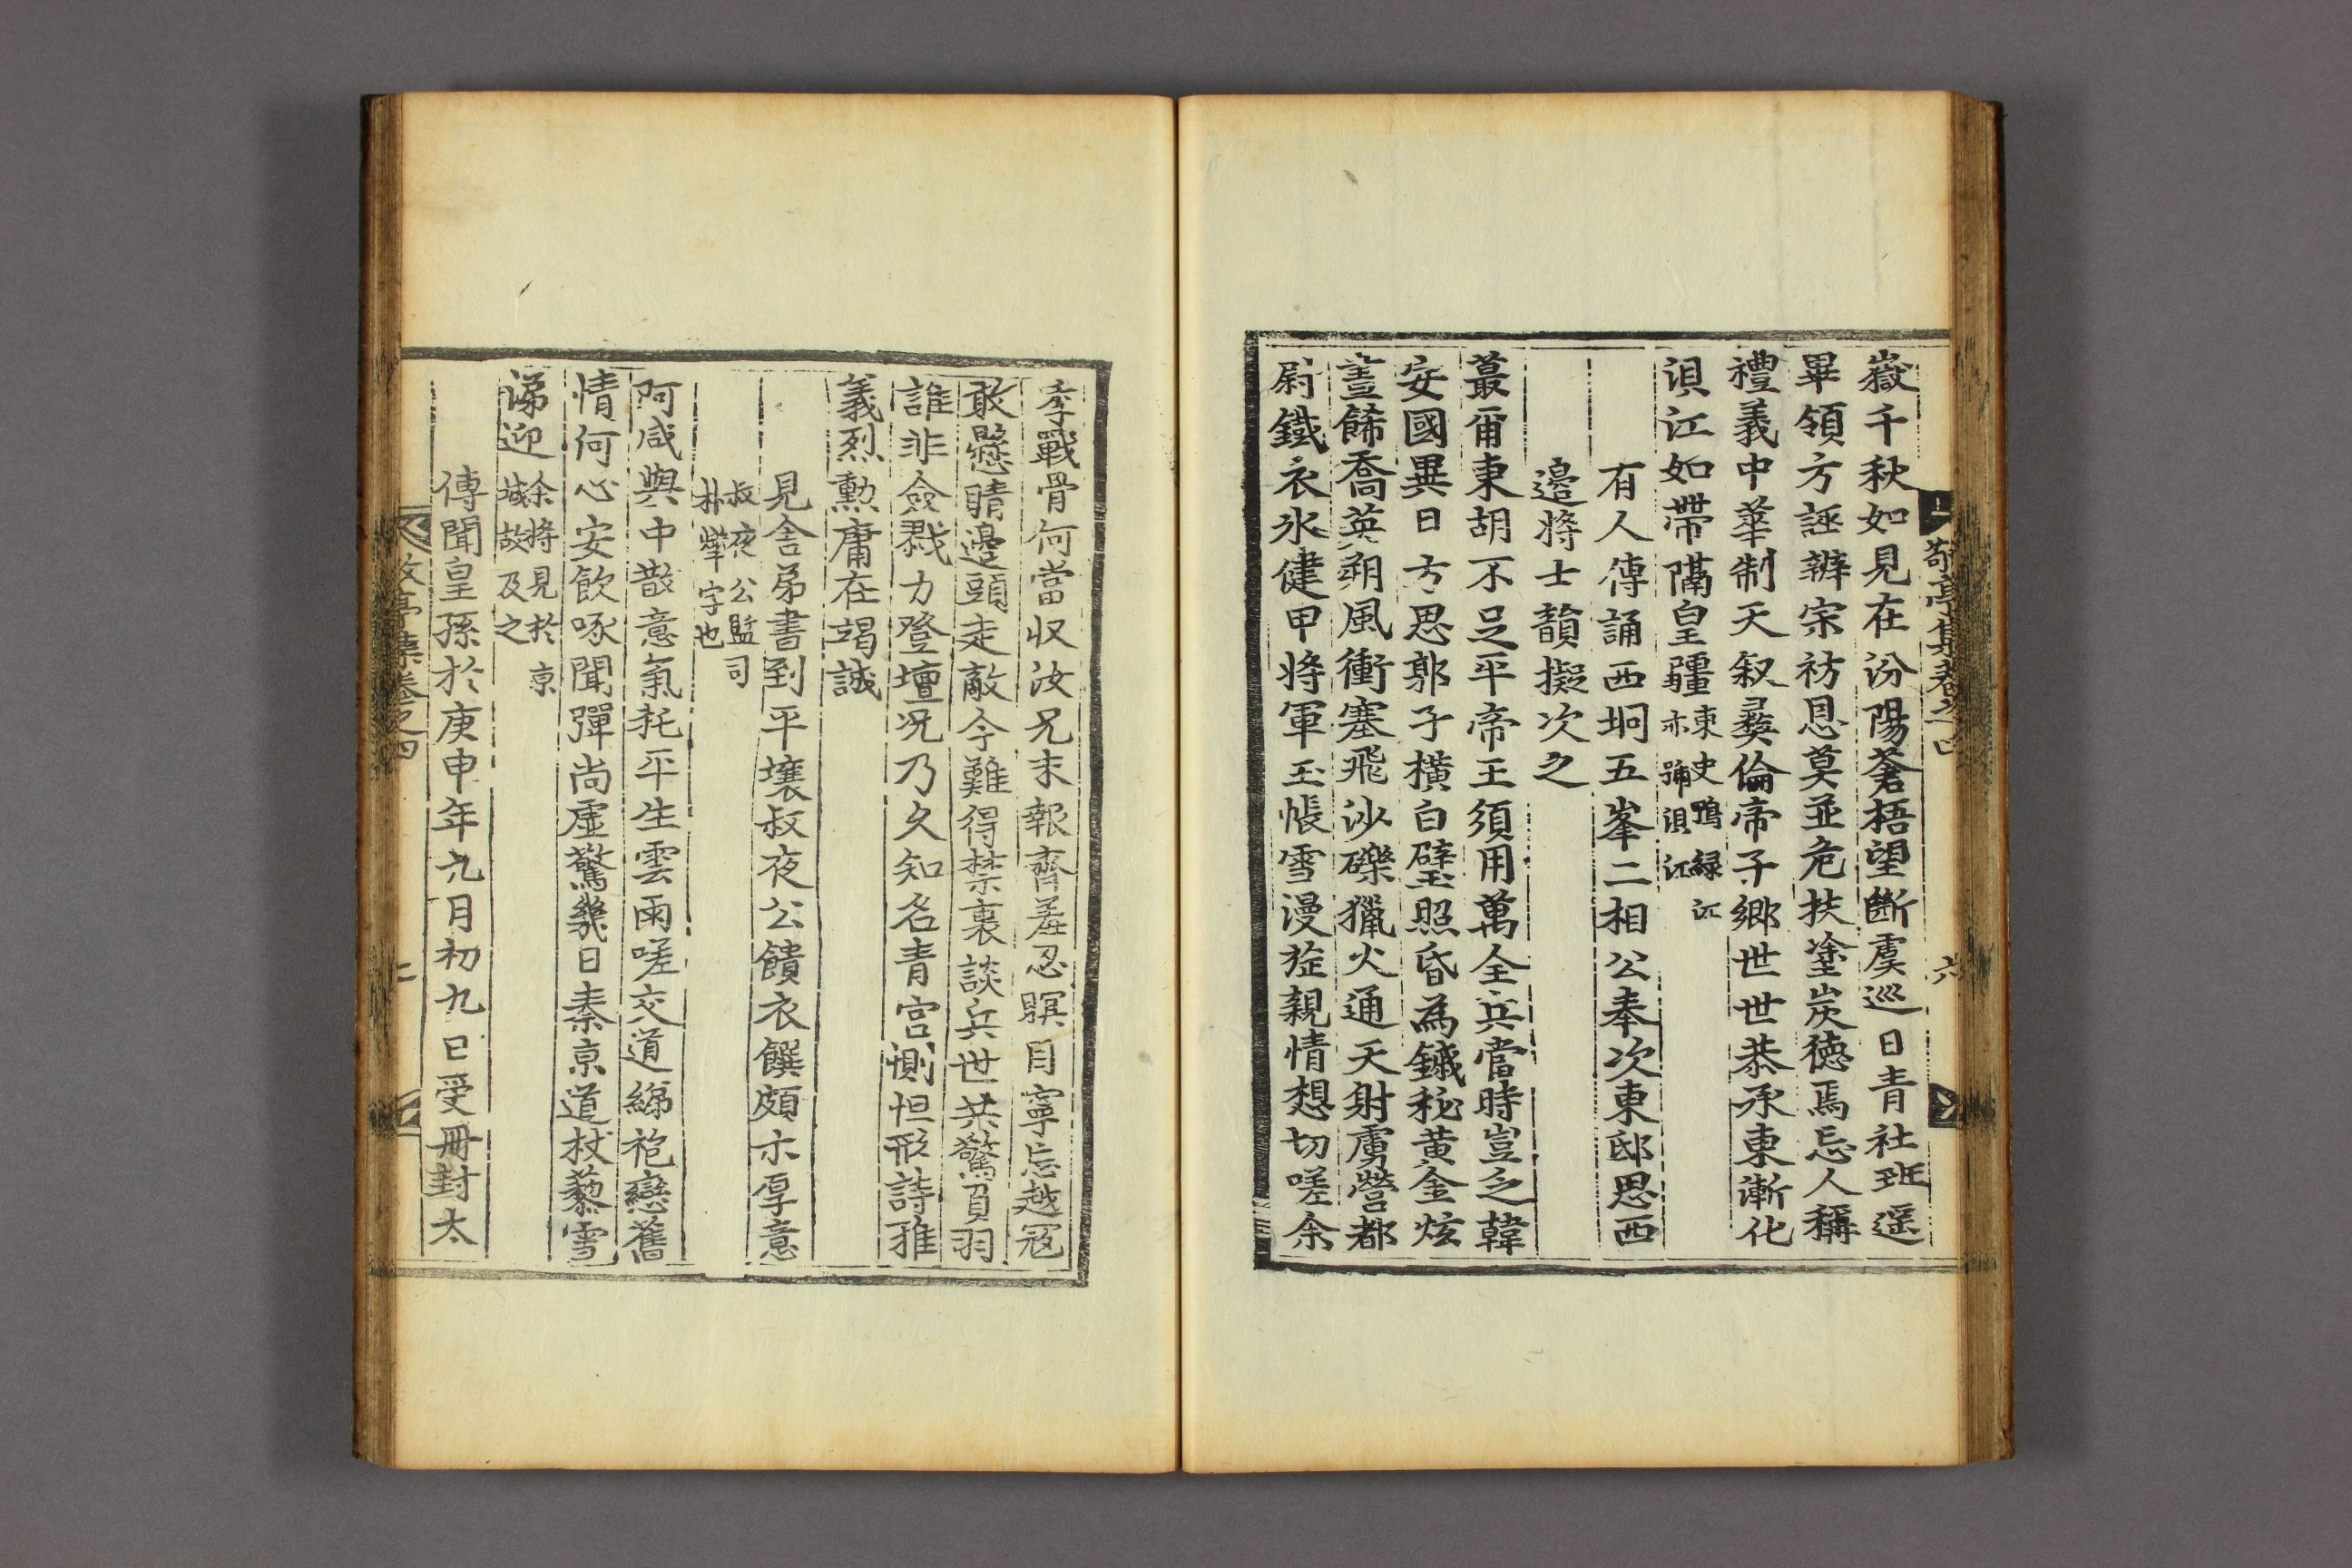 敬亭集卷之四
六
嶽千秋如見在汾陽蒼梧望斷虞巡日青社班遥
畢領方誣辨宗祊恩莫並危扶塗炭德焉忘人稱
禮義中華制天叙彛倫帝子鄉世世恭承東漸化
浿江如帶隔皇疆東史鴨綠江
亦號浿江
有人傳誦西坰五峯二相公奉次東邸思西
邊將士韻擬次之
蕞甭東胡不足平帝王須用萬全兵當時豈乏韓
安國異日方思郭子橫白璧照昏為鉞秘黄金炫
晝餙喬英朔風衝塞飛沙礫獵火通天射虜營都
尉鐵衣氷健甲將軍玉帳雪漫旌親情想切嗟余
季戰骨何當収汝兄未報齊羞忍瞑目寧忘越冦
敢懸睛邊頭走敵今難得禁裏談兵世共驚負羽
誰非僉戮力登壇况乃久知名青宫惻怛形詩雅
義烈勲庸在竭誠
見舍弟書到平壤叔夜公饋衣饌頗亦厚意
叔夜公監司
朴燁字也
阿咸與中散意氣托平生雲雨嗟交道綈袍戀舊
情何心安飲啄聞彈尚虛驚幾日秦京道杖藜雪
涕迎余將見於京
城故及之
傳聞皇孫於庚申年九月初九日受冊封太
敬亭集卷之四